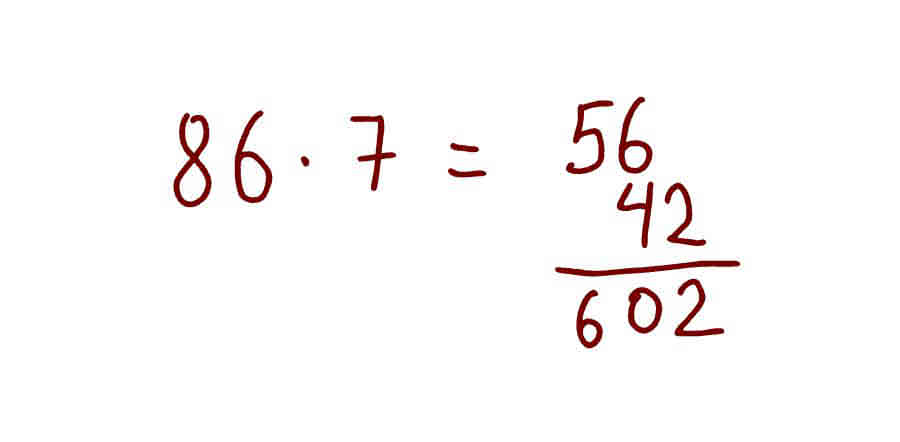 86 · 7 = 56
42
602